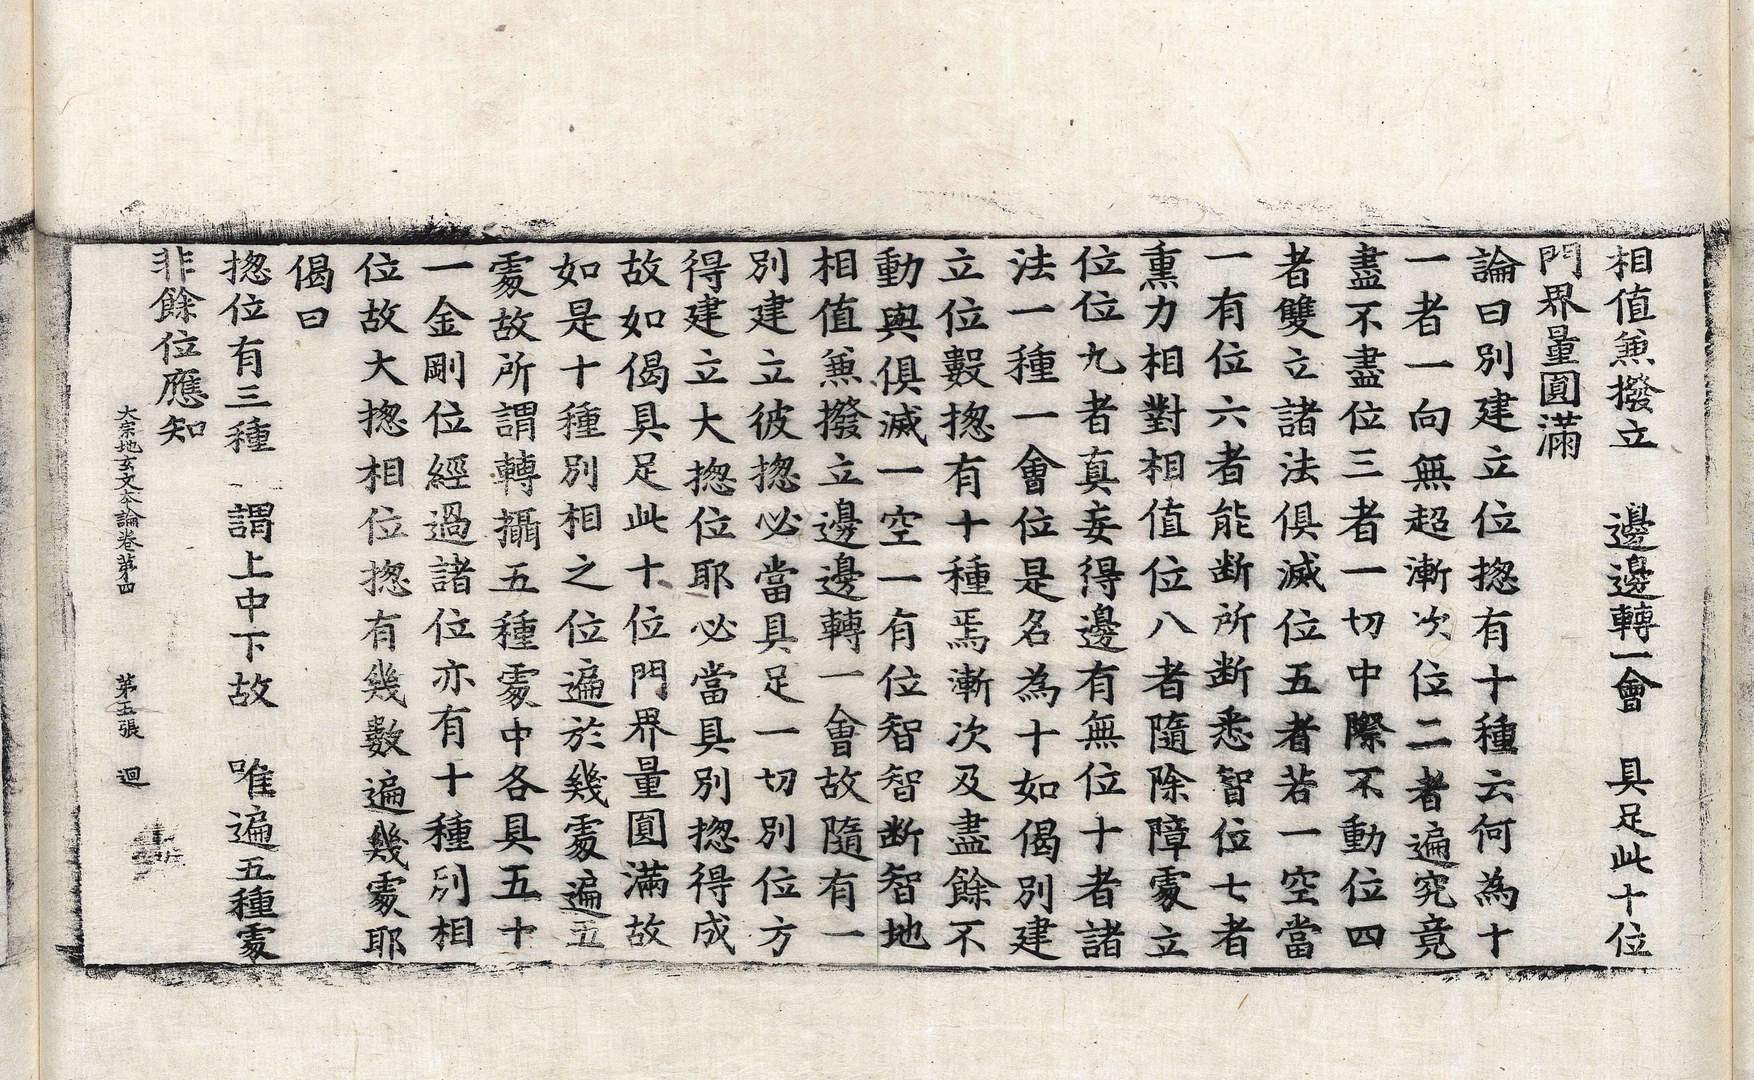 相值兼撥立　邊邊轉一會　具足此十位
門界量圓滿
論曰別建立位揔有十種云何為十
一者一向無超漸次位二者遍究竟
盡不盡位三者一切中際不動位四
者雙立諸法俱滅位五者若一空當
一有位六者能斷所斷悉智位七者
熏力相對相值位八者隨除障處立
位位九者真妄得邊有無位十者諸
法一種一會位是名為十如偈別建
立位數揔有十種焉漸次及盡餘不
動與俱滅一空一有位智智断智地
相值兼撥立邊邊轉一會故隨有一
別建立彼揔必當具足一切別位方
得建立大揔位耶必當具別揔得成
故如偈具足此十位門界量圓滿故
如是十種別相之位遍於幾處遍五
處故所謂轉攝五種處中各具五十
一金剛位經過諸位亦有十種別相
位故大揔相位揔有幾數遍幾處耶
偈曰
揔位有三種　謂上中下故　唯遍五種處
非餘位應知
大宗地玄文本論卷第四　第五張　迴